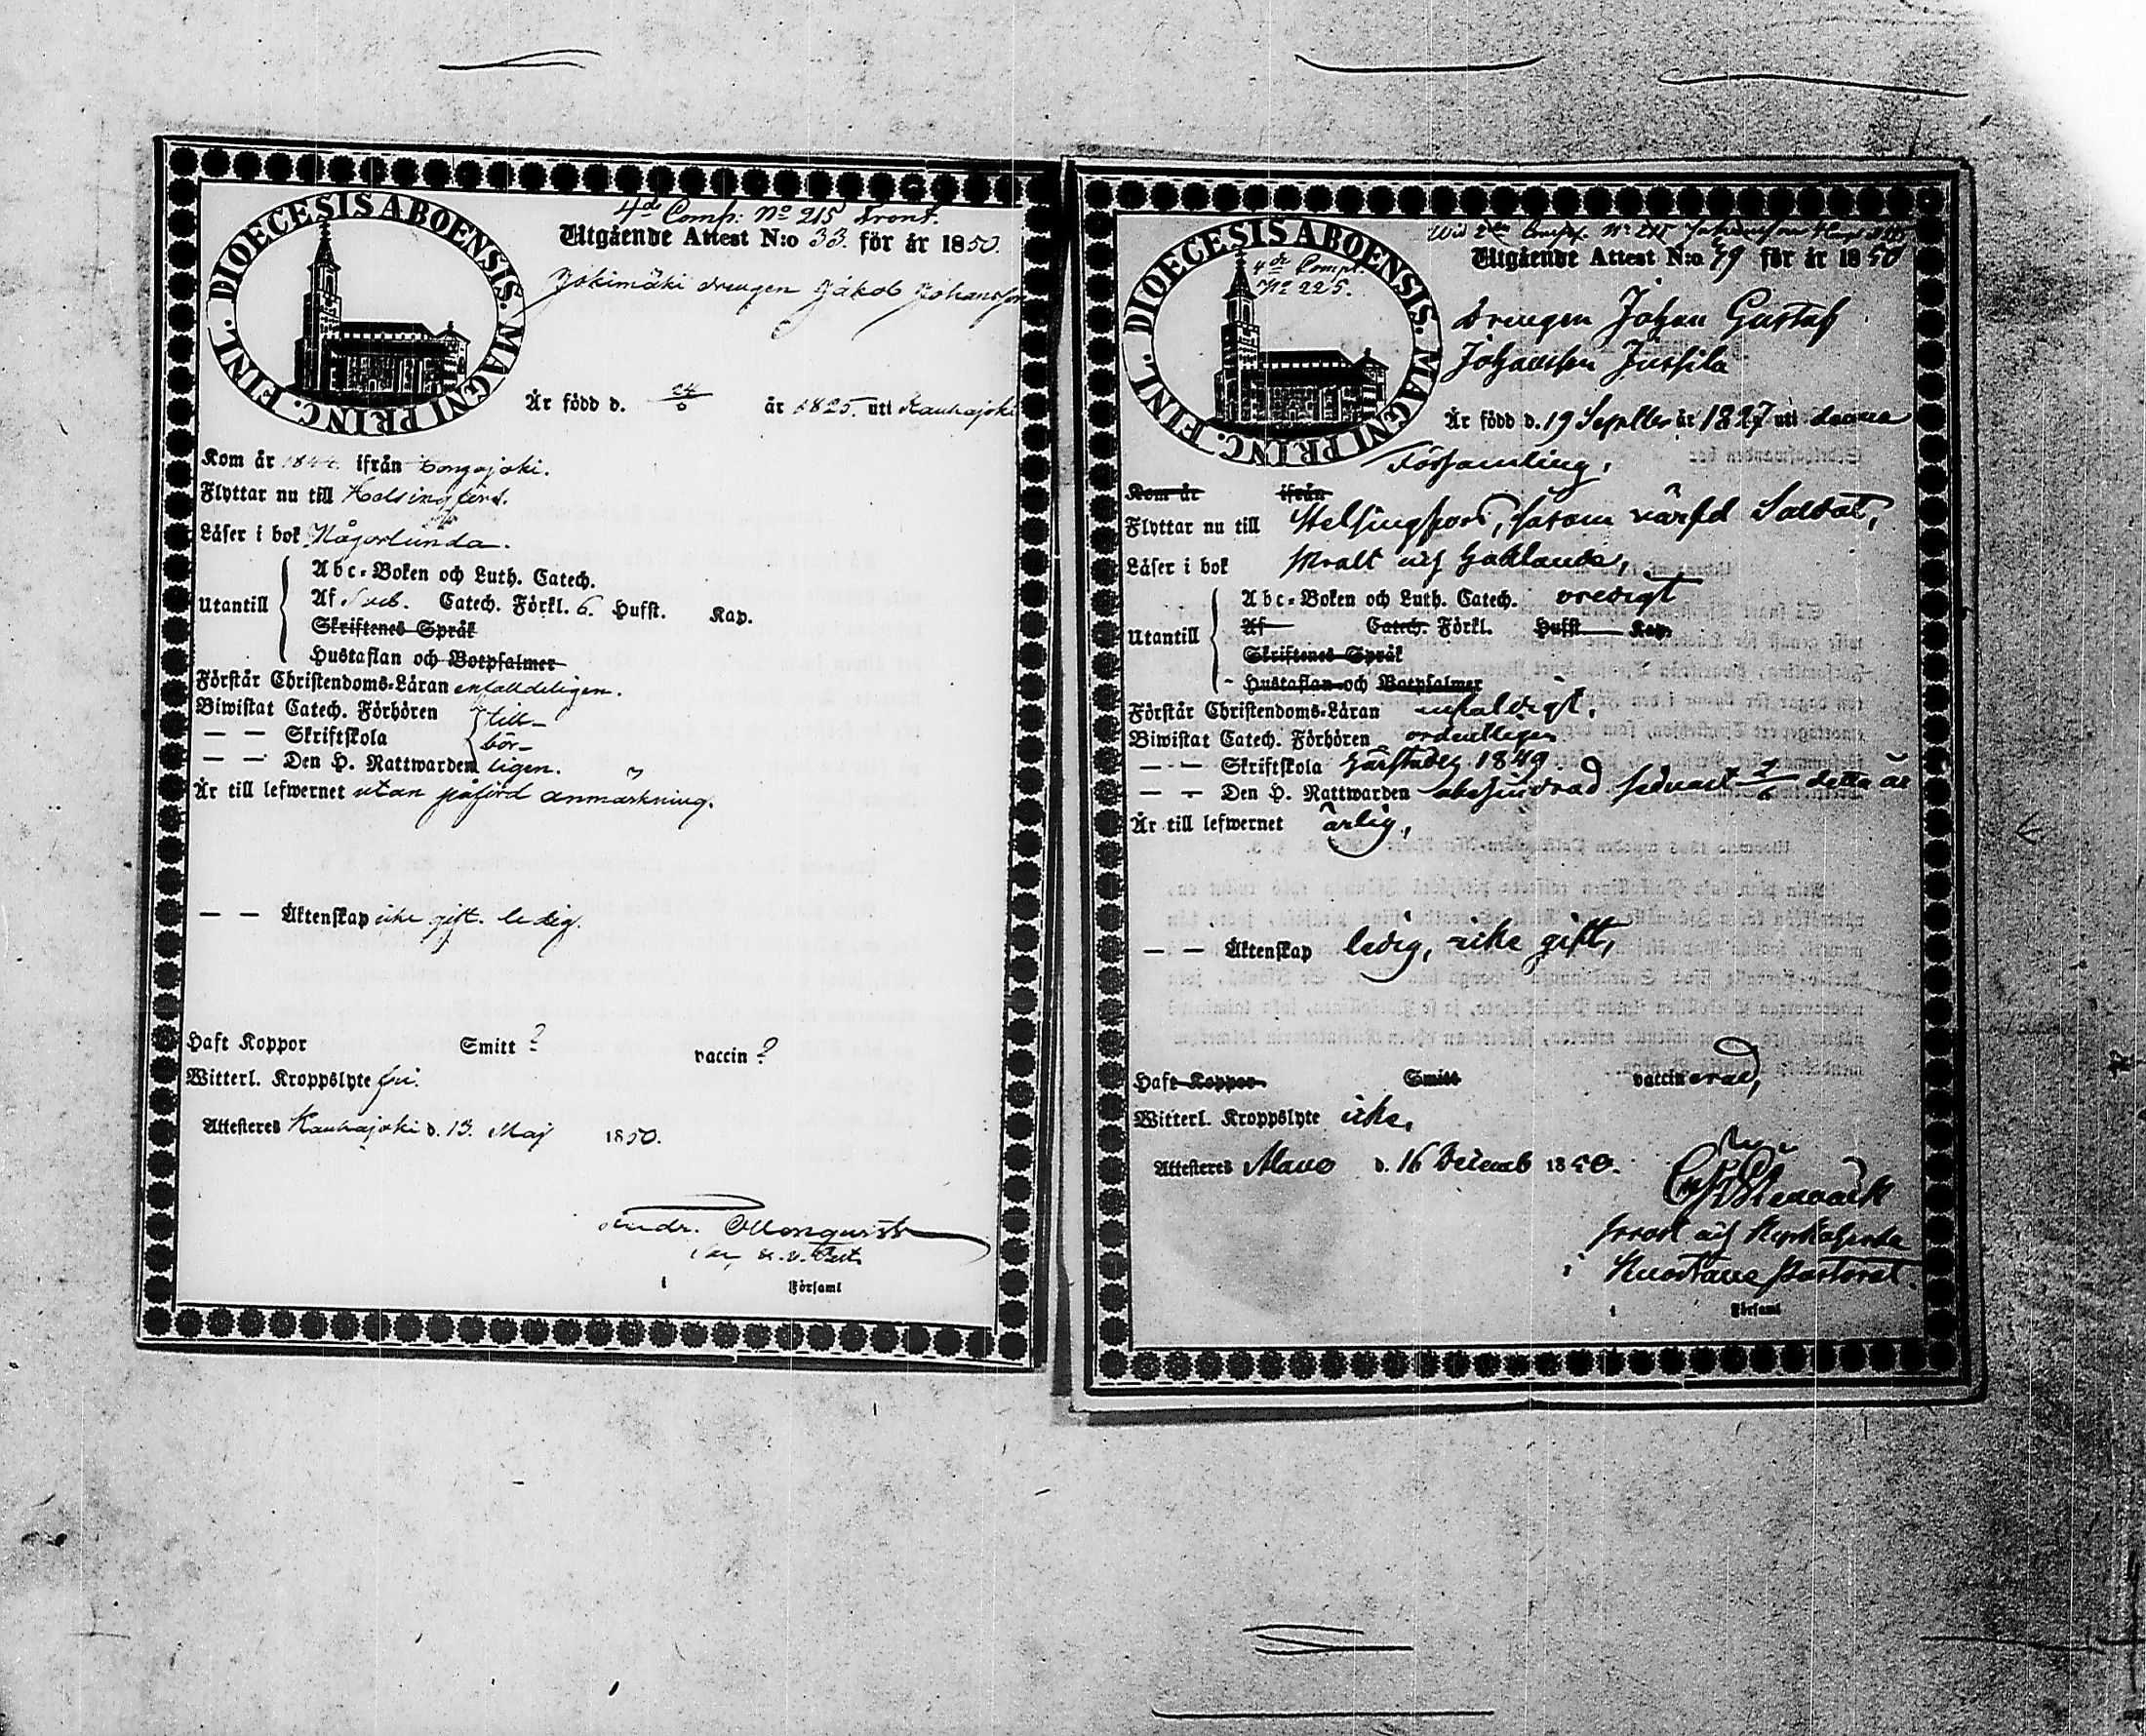 4de Comp: No 215 Front.
DIOECESIS ABOENSIS. MAGNI PRINC. FINL.
Utgående Attest N:o 33. för år 1850.
Jokimäki drengen Jakob Johansson
Är född d. år 1825. uti Kauhajoki
Kom år ifrån
Flyttar nu till Helsingfors.
Läser i bok Någorlunda.
Abc-Boken och Luth. Catech.
Utantill Af Sveb. Catech. Förkl. 6. Hufst. Kap.
Skriftenes Språk
Hustaflan och Botpsalmer
Förstår Christendoms-Läran enfalldeligen.
Biwistat Catech. Förhören till-
— — Skriftskola bör-
— — Den H. Nattwarden ligen.
Är till lefwernet utan påförd anmärkning.
— — Äktenskap icke gift. ledig.
Haft Koppor Smitt ? vaccin ?
Witterl. Kroppslyte fri.
Attesteres Kauhajoki d. 13. Maj 1850.
i Församl
DIOECESIS ABOENSIS. MAGNI PRINC. FINL.
4de Comp.
No 225.
Utgående Attest N:o 49 för år 1850
Drengen Johan Gustaf
Johansson Jussila
Är född d. 19 Septbr år 1827 uti denna
Församling,
Kom år ifrån
Flyttar nu till Helsingfors, såsom värfd Soldat,
Läser i bok svalt och hållande,
Abc-Boken och Luth. Catech. oredigt
Utantill Af Catech. Förkl. Hufst Kap.
Skriftenes Språk
Hustaflan och Botpsalmer
Förstår Christendoms-Läran enfaldigt.
Biwistat Catech. Förhören ordentligen
— — Skriftskola 1849
— — Den H. Nattwarden senast detta år
Är till lefwernet ärlig,
— — Äktenskap ledig, icke gift,
Haft Koppor Smitt vaccinerad,
Witterl. Kroppslyte icke,
Attesteres Alavo d. 16 Decemb 1850.
i Kuortane Pastorat.
i Församl